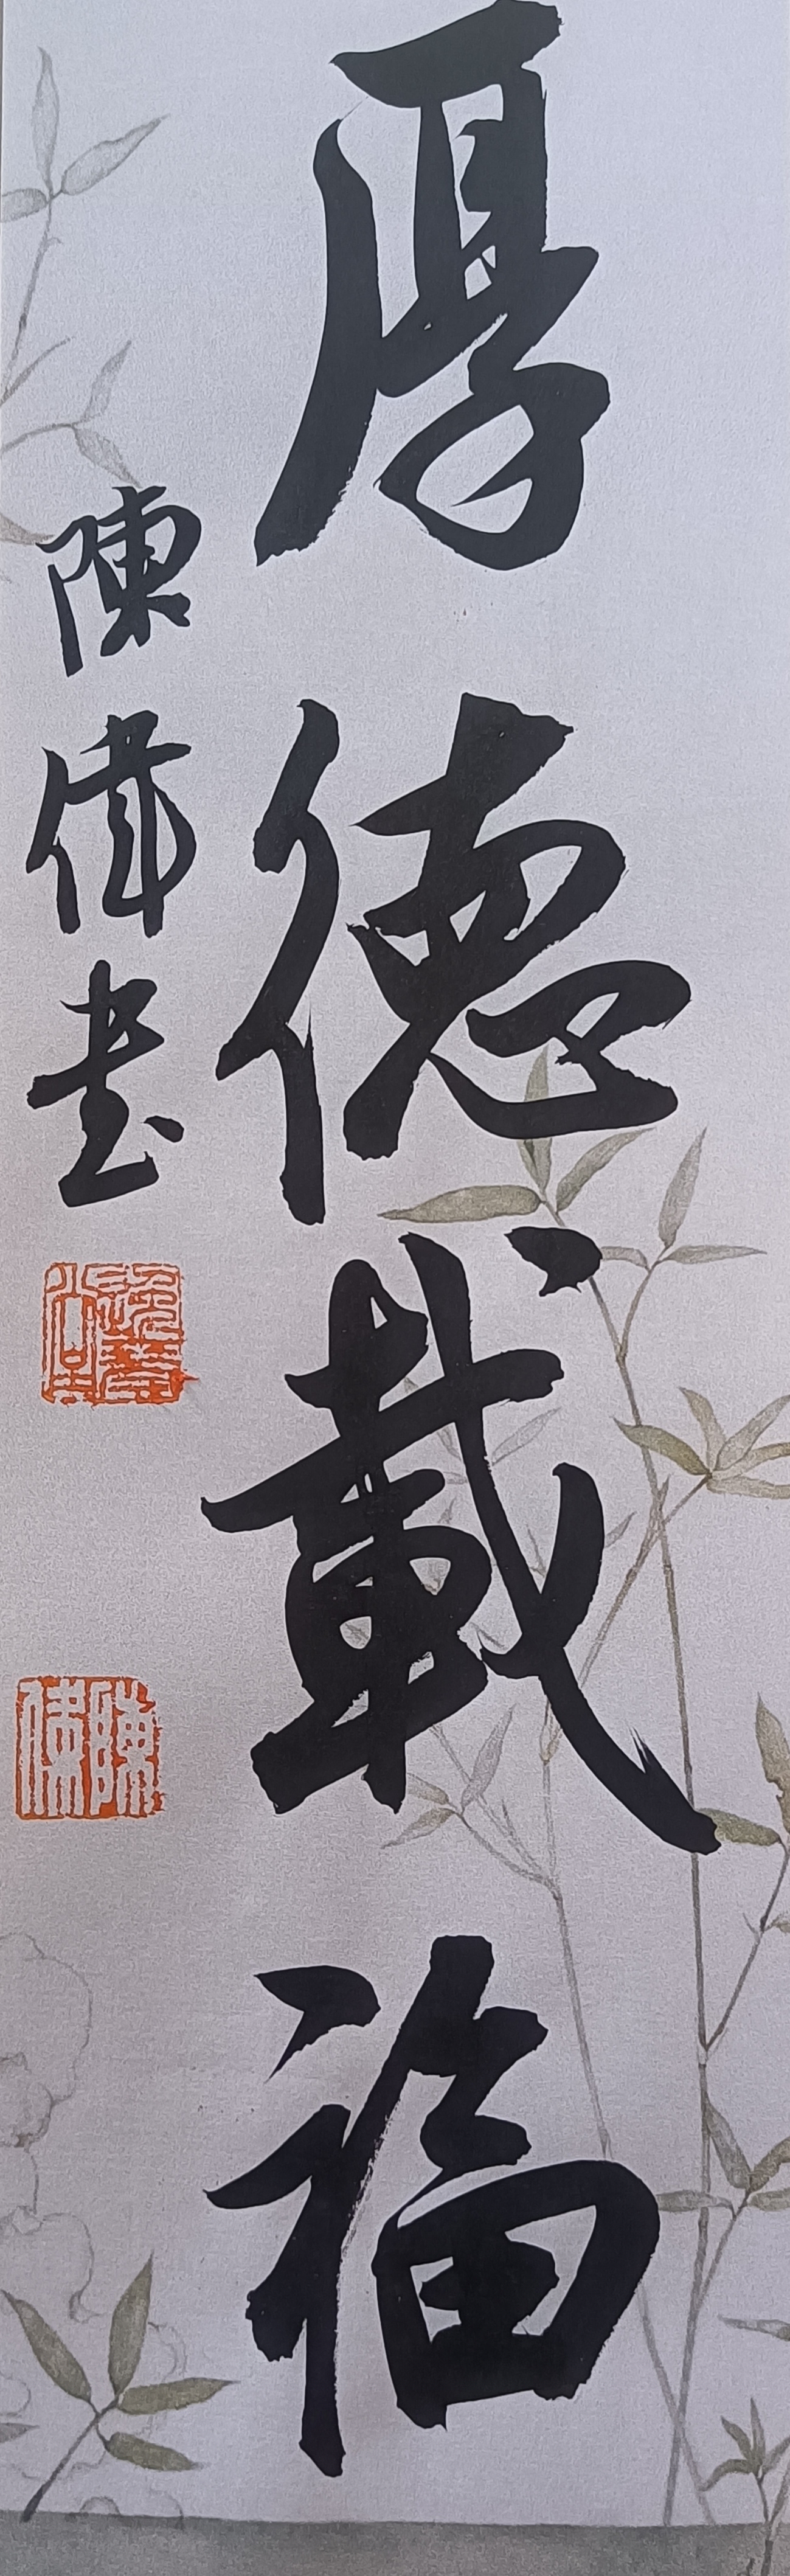 厚德載福
陳偉書
陳偉